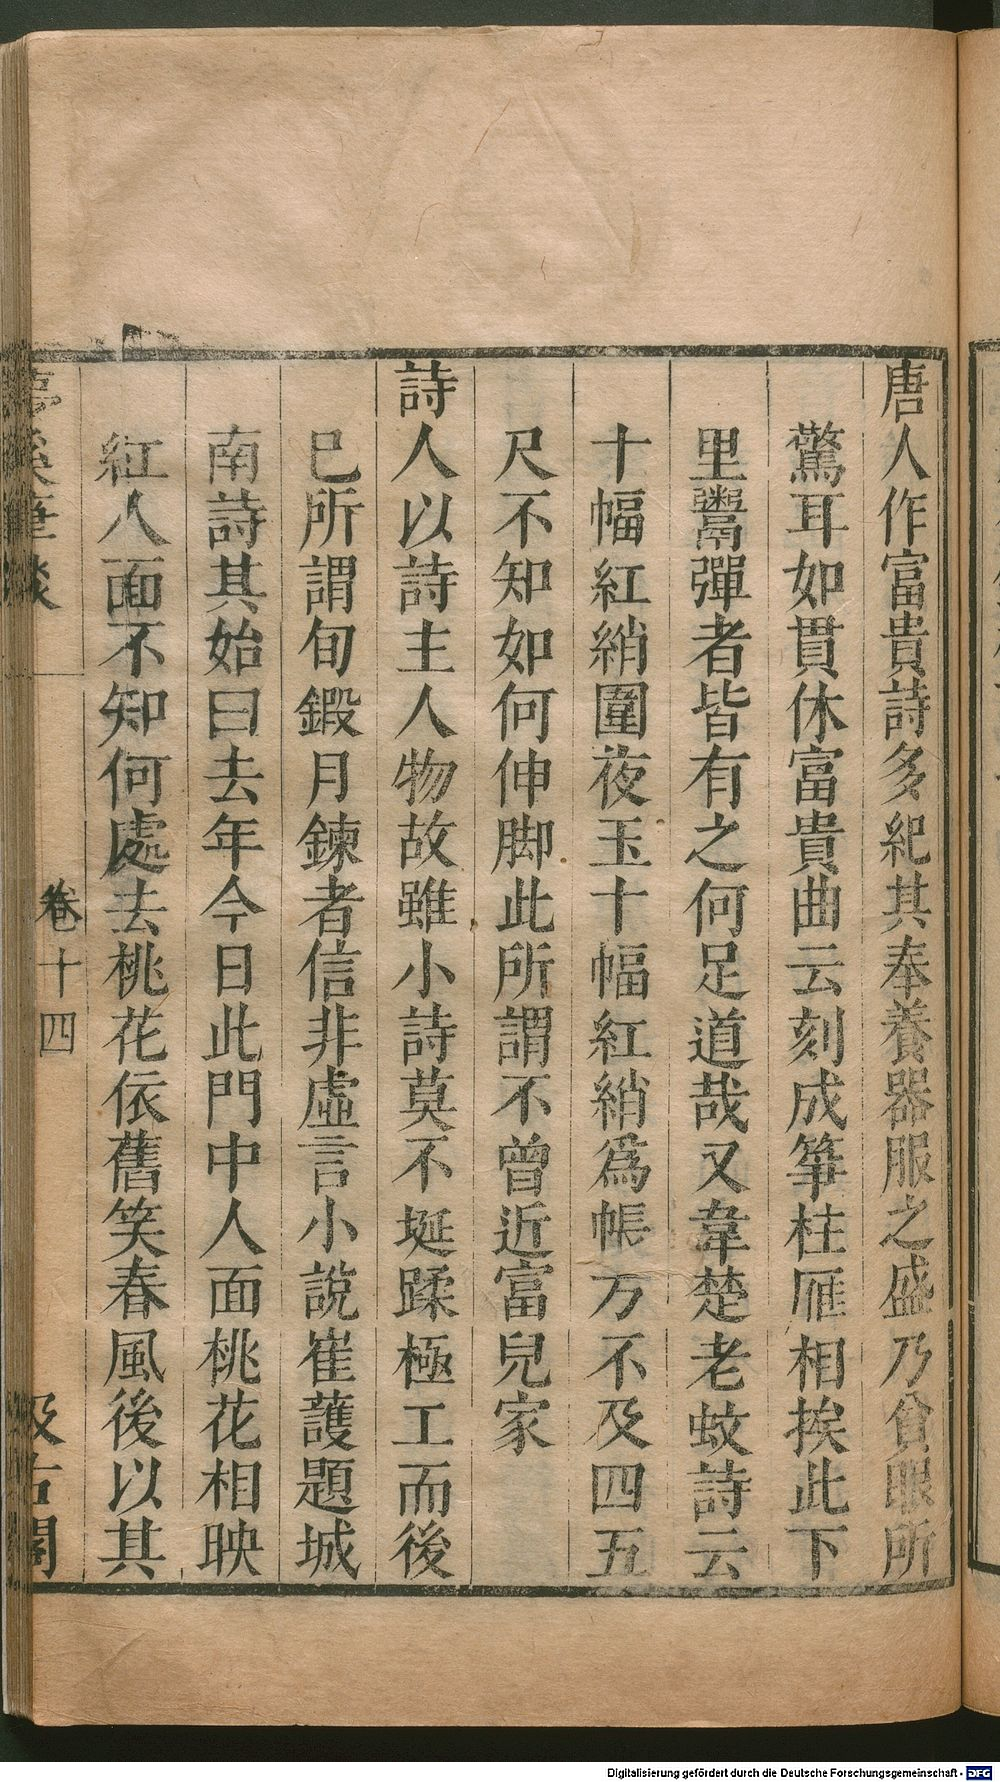 唐人作富貴詩多紀其奉養器服之盛乃貧眼所
驚耳如貫休富貴曲云刻成箏柱雁相挨此下
里鬻彈者皆有之何足道哉又韋楚老蚊詩云
十幅紅綃圍夜玉十幅紅綃爲帳方不及四五
尺不知如何伸脚此所謂不曾近富兒家
詩人以詩主人物故雖小詩莫不埏蹂極工而後
已所謂旬鍜月鍊者信非虛言小說崔護題城
南詩其始曰去年今日此門中人面桃花相映
紅人面不知何處去桃花依舊笑春風後以其
夢溪筆談
卷十四
汲古閣
Digitalisierung gefördert durch die Deutsche Forschungsgemeinschaft - DFG